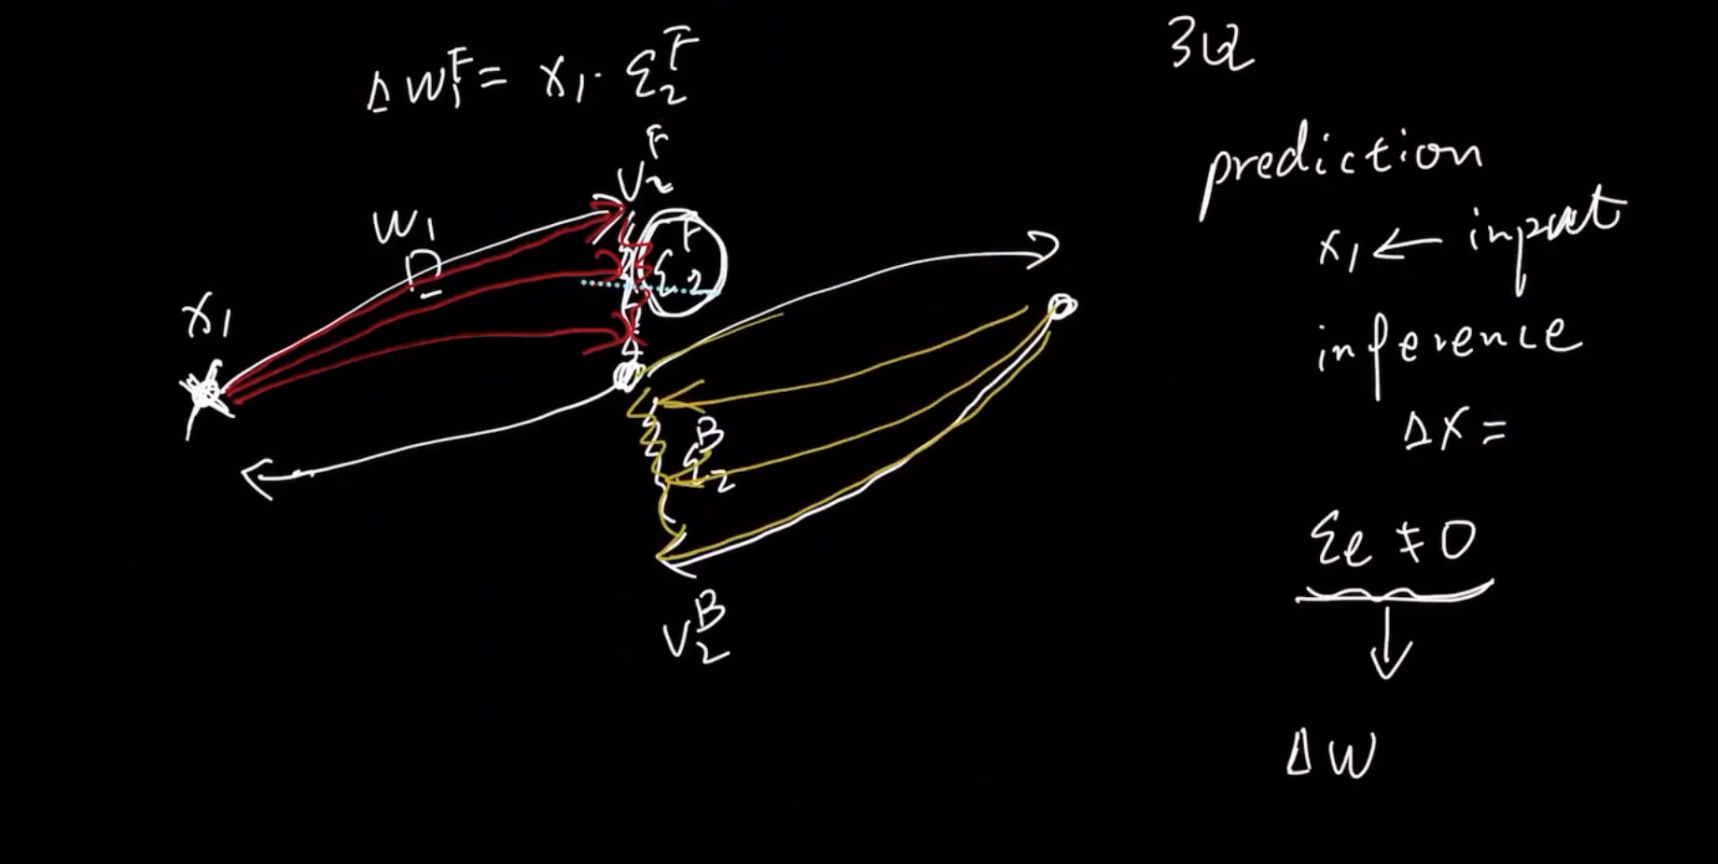 ΔW₁ᶠ = x₁ · Ɛ₂ᶠ
V₂ᶠ
W₁
Ɛ₂ᶠ
x₁
Ɛ₂ᴮ
V₂ᴮ
prediction
x₁ ← input
inference
Δx =
Ɛe ≠ 0
↓
ΔW